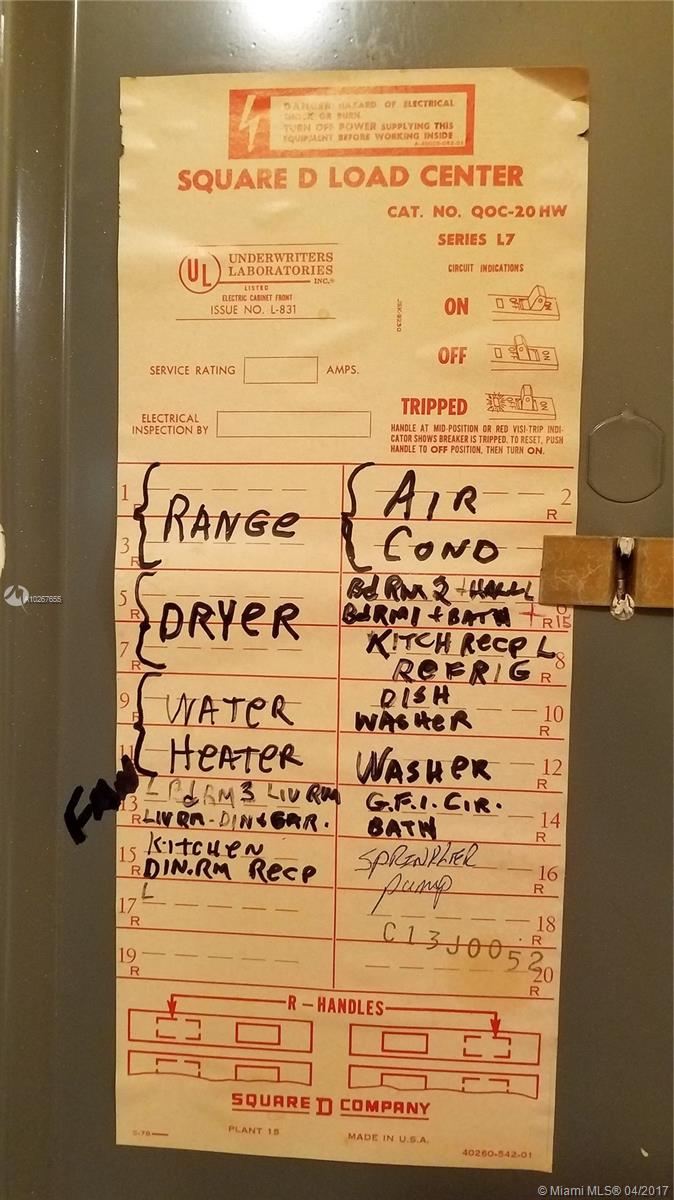 DANGER: HAZARD OF ELECTRICAL
SHOCK OR BURN.
TURN OFF POWER SUPPLYING THIS
EQUIPMENT BEFORE WORKING INSIDE
SQUARE D LOAD CENTER
CAT. NO. QOC-20 HW
SERIES L7
CIRCUIT INDICATIONS
UL
UNDERWRITERS
LABORATORIES
INC.®
LISTED
ELECTRIC CABINET FRONT
ISSUE NO. L-831
ON
OFF
SERVICE RATING AMPS.
TRIPPED
ELECTRICAL
INSPECTION BY
HANDLE AT MID-POSITION OR RED VISI-TRIP INDI-
CATOR SHOWS BREAKER IS TRIPPED. TO RESET, PUSH
HANDLE TO OFF POSITION, THEN TURN ON.
1 RANGE
3 R
AIR 2
COND R
5 DRYER
7 R
BdRM 2 + HALL L 6
BdRM1 + BATH R 15
KITCH RECP L 8
REFRIG R
9 WATER
11 HEATER
DISH 10
WASHER R
WASHER 12
R
FAN
13 L BdRM 3 LIV RM
R LIV RM - DIN & GAR.
G.F.I. CIR. 14
BATH R
15 KITCHEN
R DIN.RM RECP
SPRINKLER 16
pump R
17 L
R
18
R
C13J0052
19
R
20
R
R-HANDLES
SQUARE D COMPANY
5-78
PLANT 15
MADE IN U.S.A.
40260-542-01
A10267655
© Miami MLS® 04/2017